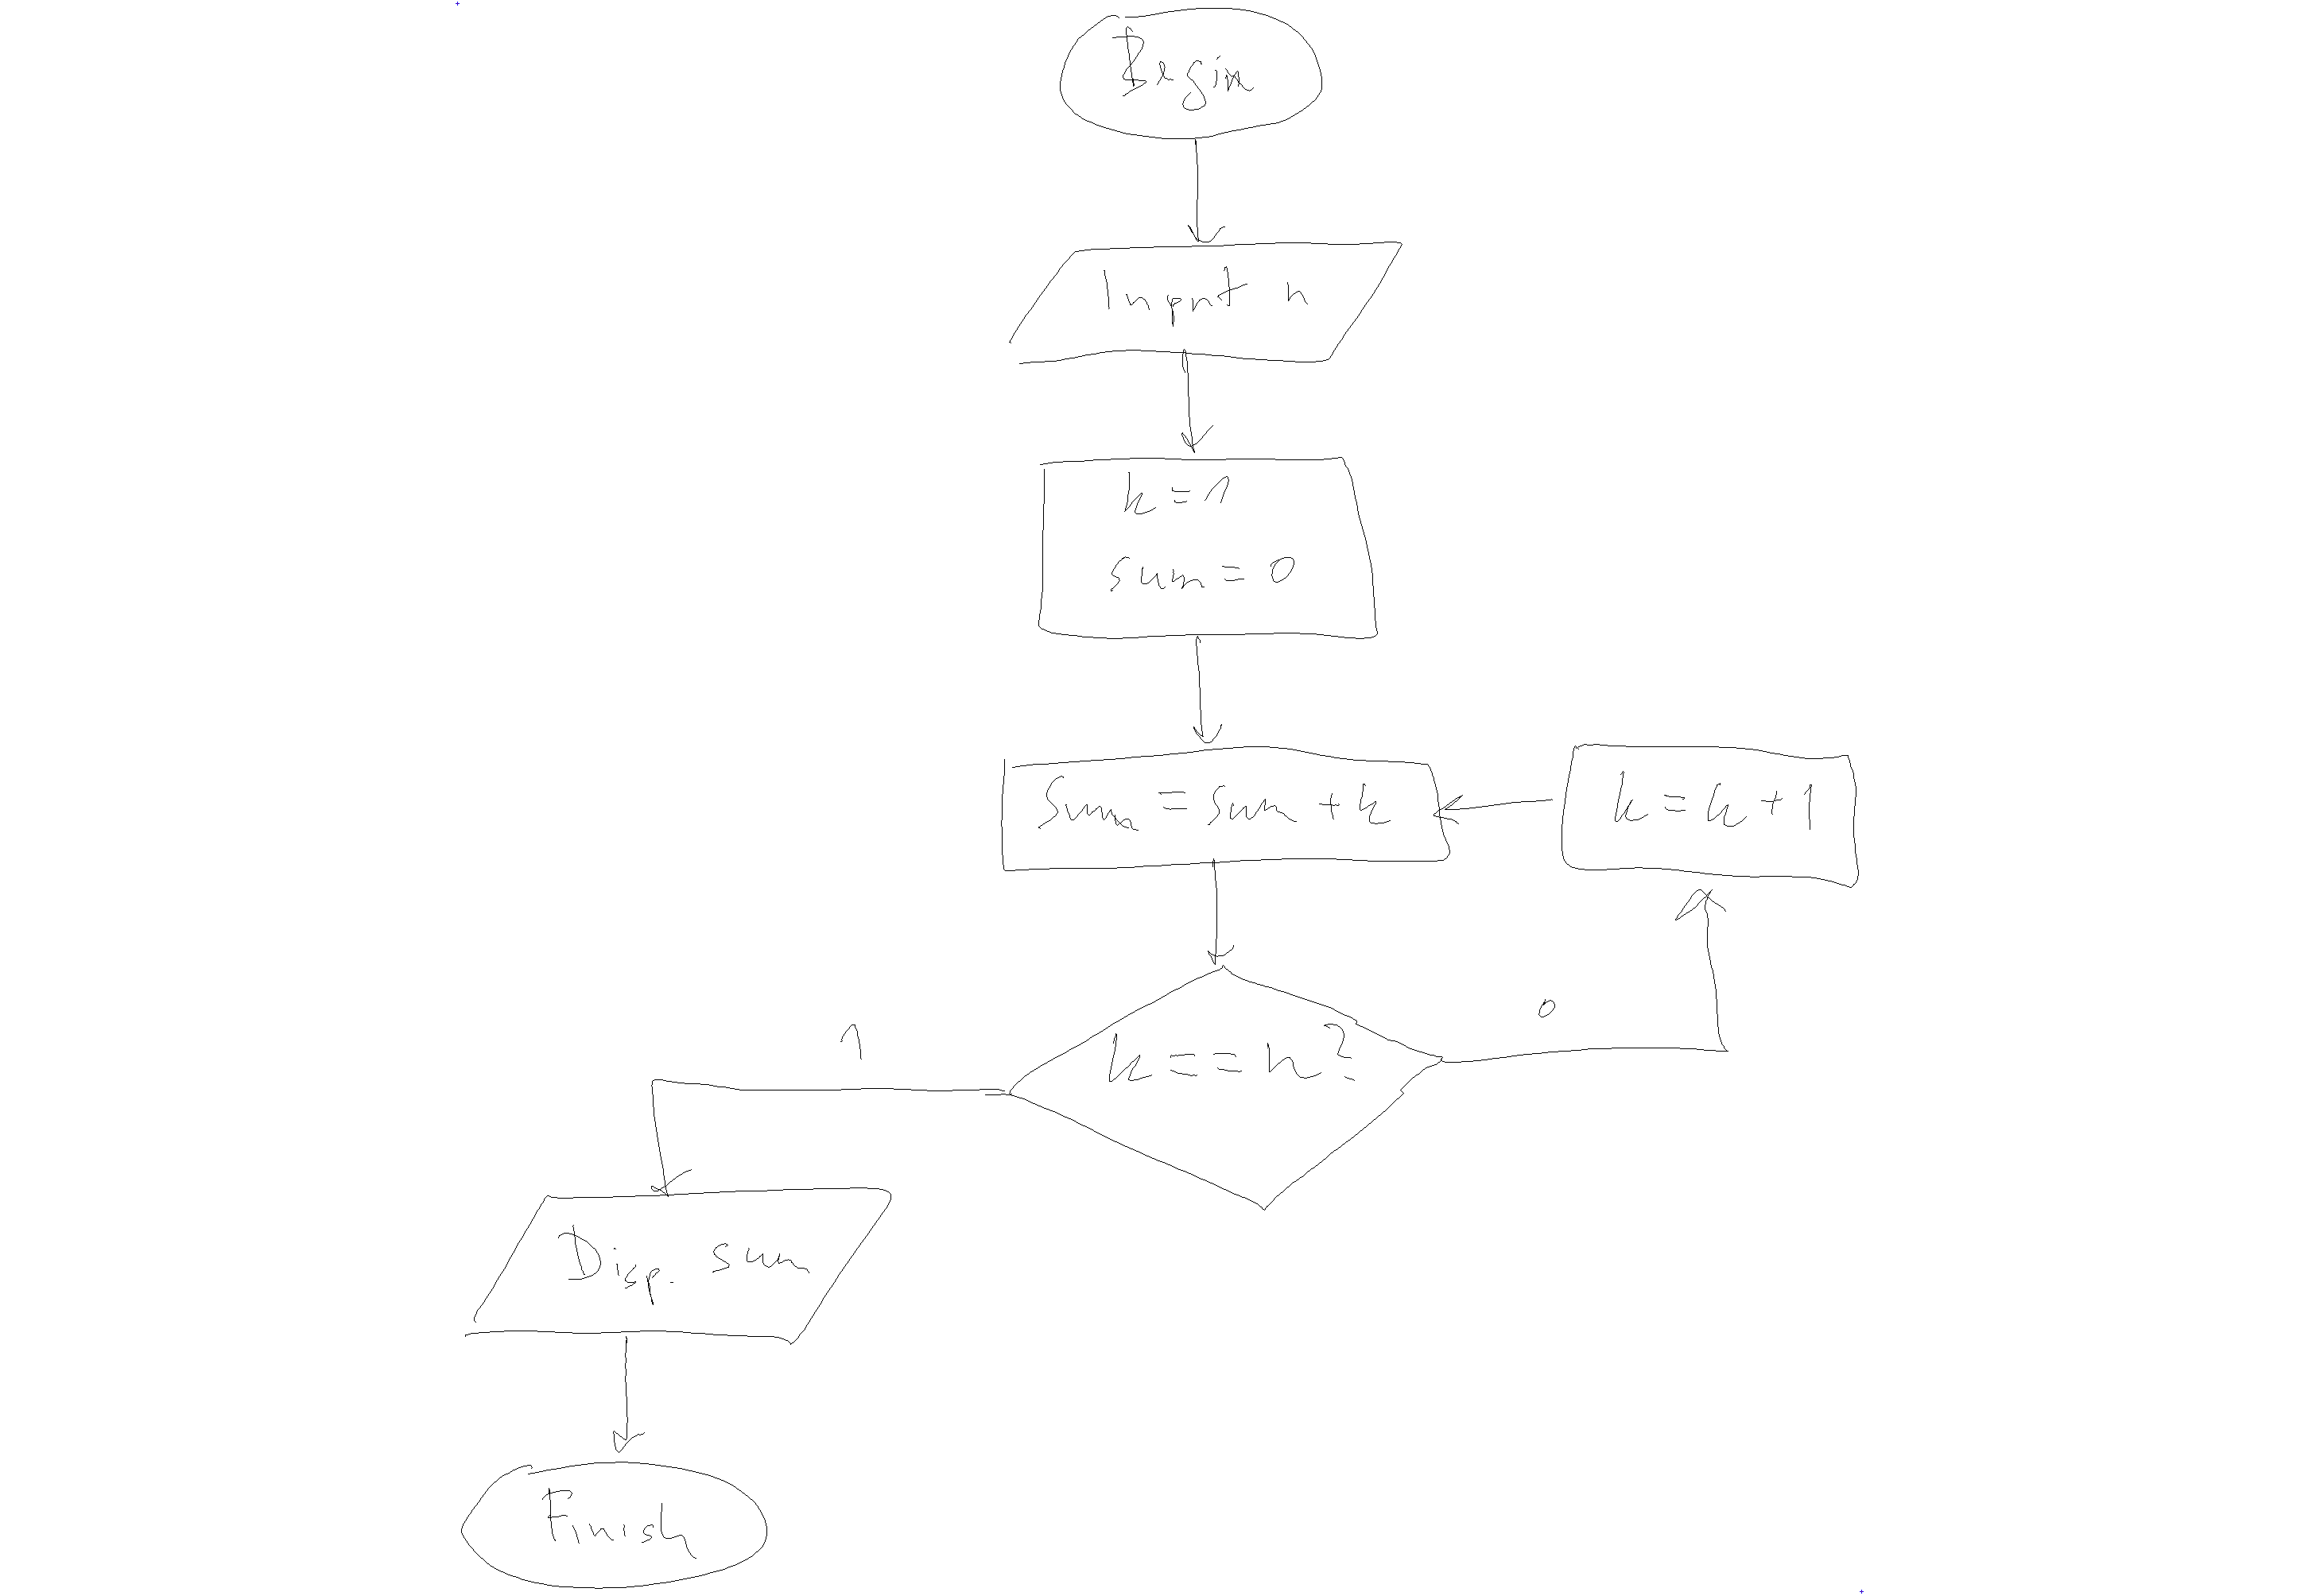 Begin
Input n
k=1
sum=0
Sum=sum+k
k=k+1
k==n?
0
1
Disp. sum
Finish